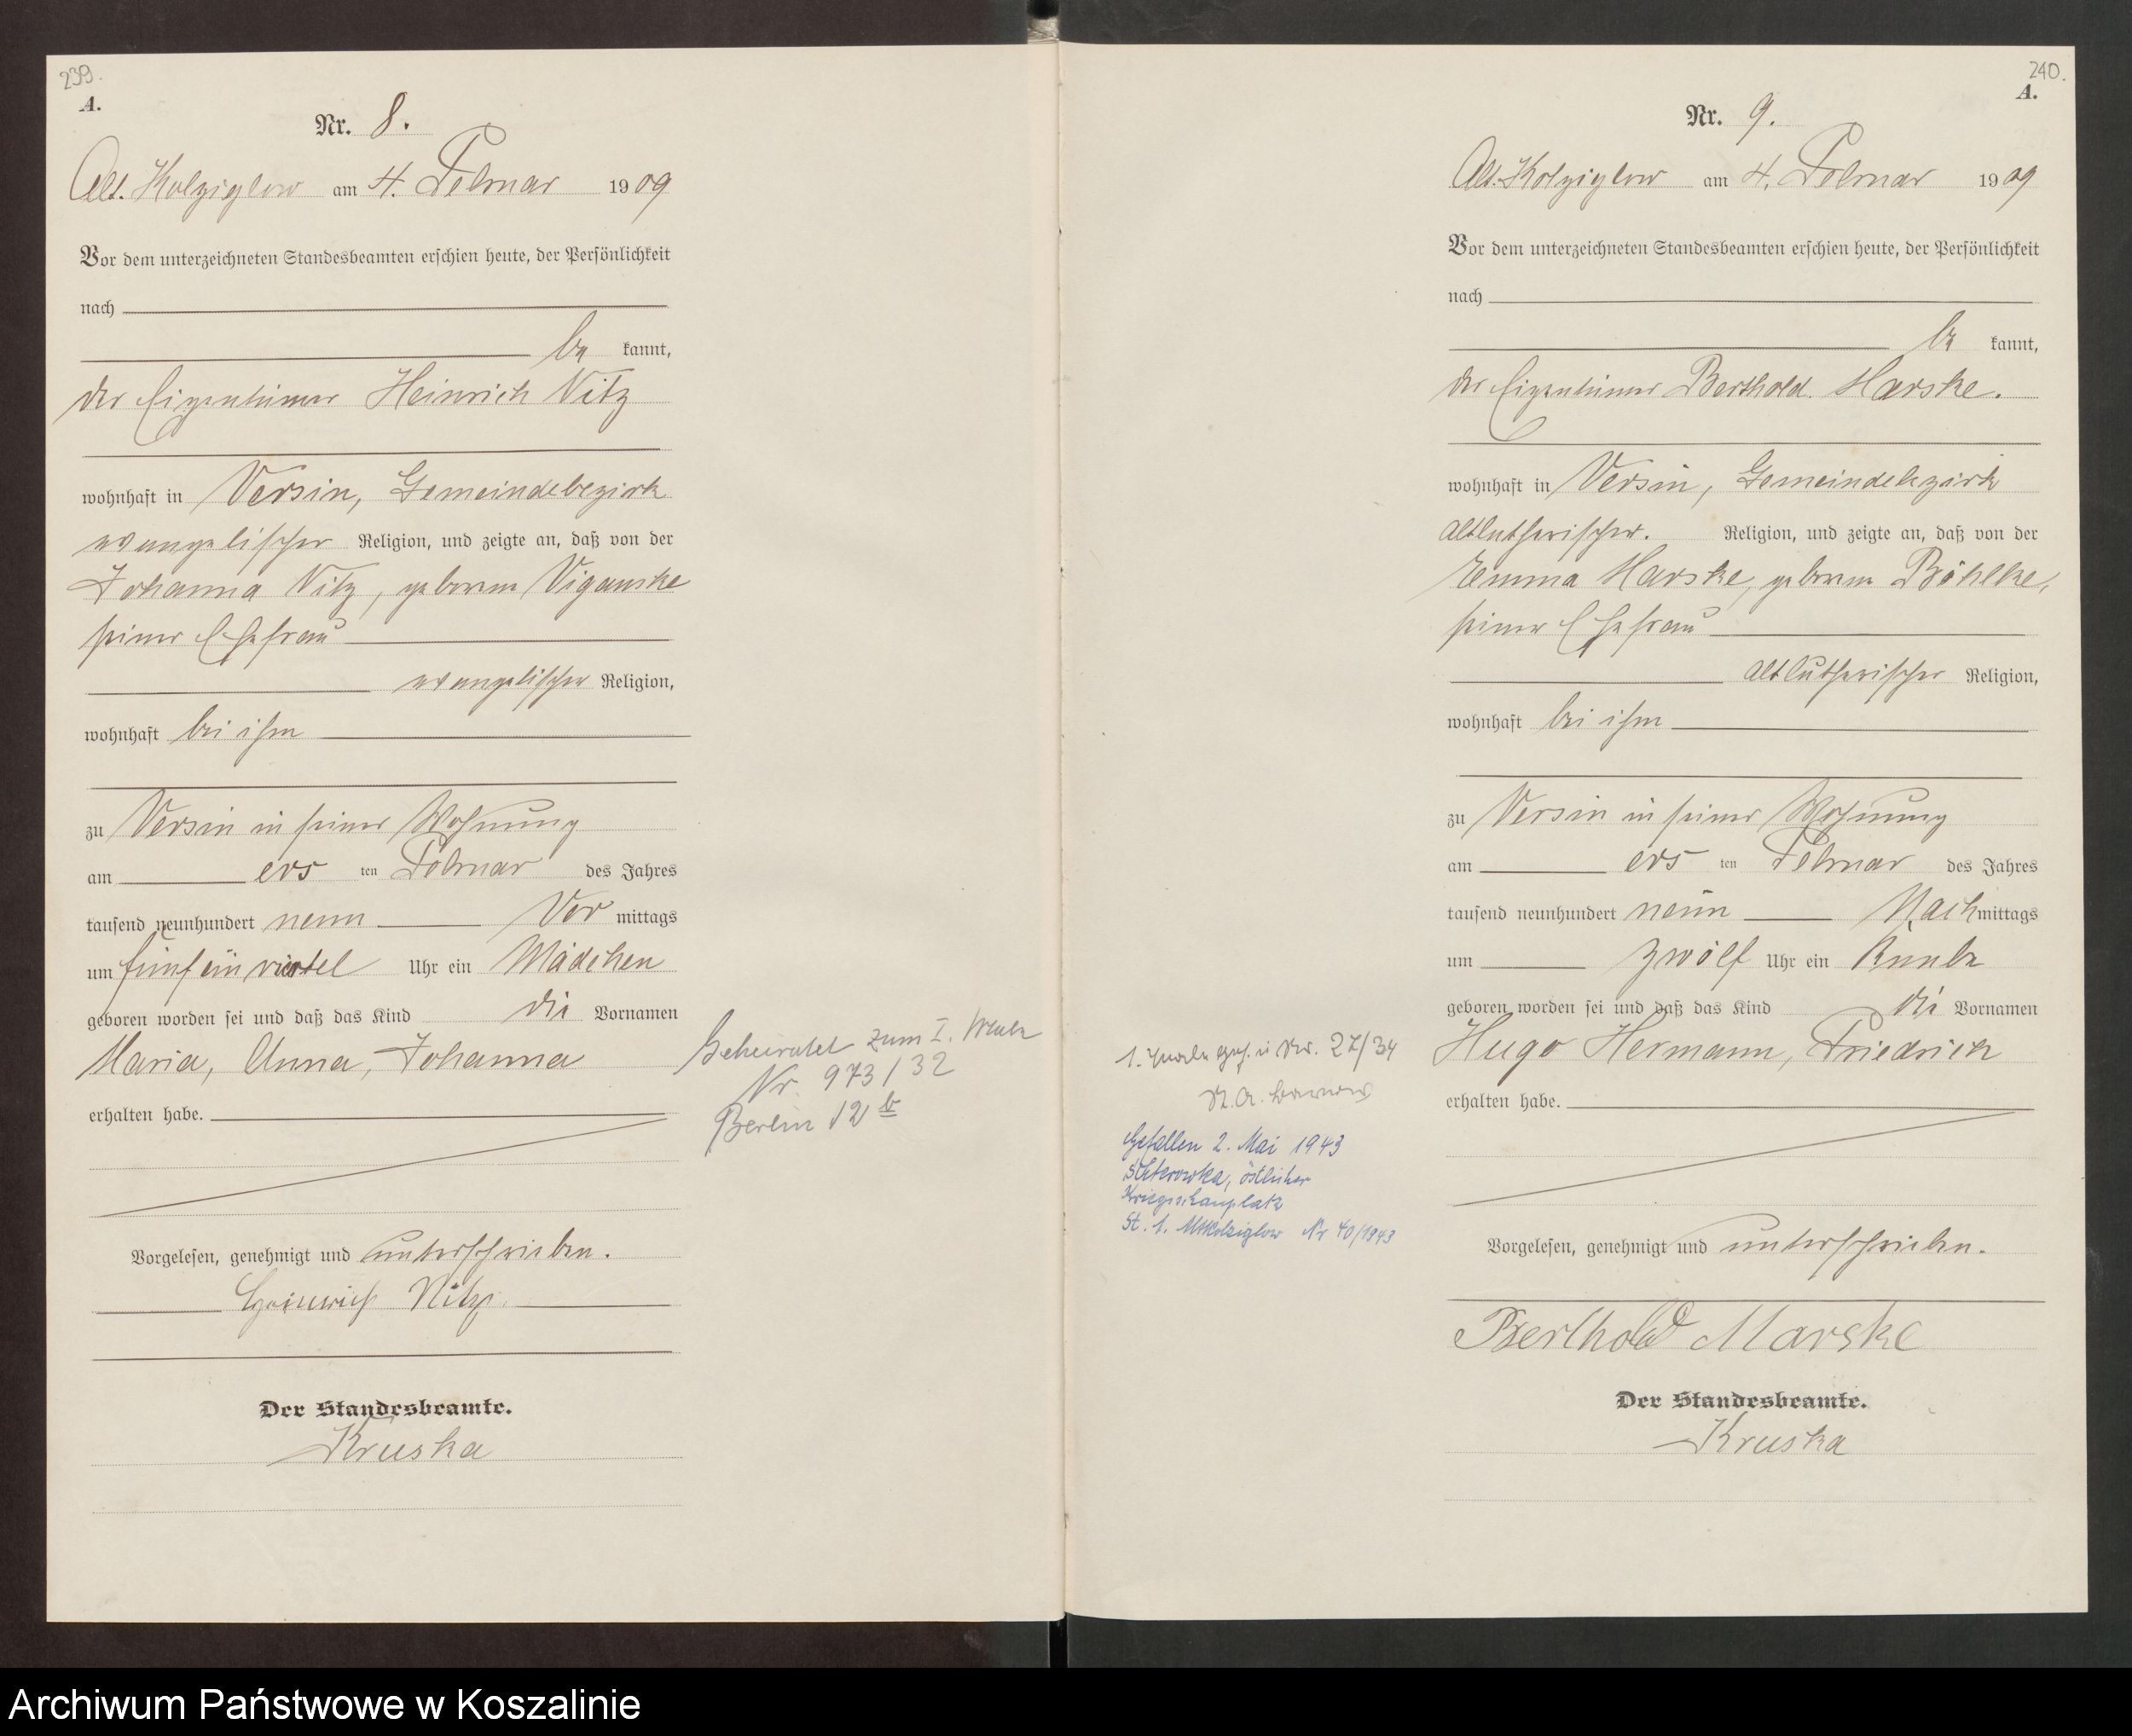 239.
A.
Nr. 8.
Alt. Kolziglow am 4. Februar 1909
Vor dem unterzeichneten Standesbeamten erschien heute, der Persönlichkeit
nach
be kannt,
der Eigentümer Heinrich Nitz
wohnhaft in Versin, Gemeindebezirk
evangelischer Religion, und zeigte an, daß von der
Johanna Nitz, geborene Viganske
seiner Ehefrau
evangelischer Religion,
wohnhaft bei ihm
zu Versin in seiner Wohnung
am ers ten Februar des Jahres
tausend neunhundert neun Vor mittags
um fünf ein viertel Uhr ein Mädchen
geboren worden sei und daß das Kind die Vornamen
Maria, Anna, Johanna
erhalten habe.
Geheiratet zum I. Male
Nr. 973/32
Berlin 12 b
Vorgelesen, genehmigt und unterschrieben.
Heinrich Nitz.
Der Standesbeamte.
Kruska
240.
A.
Nr. 9.
Alt. Kolziglow am 4. Februar 1909
Vor dem unterzeichneten Standesbeamten erschien heute, der Persönlichkeit
nach
be kannt,
der Eigentümer Berthold Marske.
wohnhaft in Versin, Gemeindebezirk
altlutherischer. Religion, und zeigte an, daß von der
Emma Marske, geborene Böhlke,
seiner Ehefrau
altlutherischer Religion,
wohnhaft bei ihm
zu Versin in seiner Wohnung
am ers ten Februar des Jahres
tausend neunhundert neun Nachmittags
um zwölf Uhr ein Knabe
geboren worden sei und daß das Kind die Vornamen
Hugo Hermann, Friedrich
erhalten habe.
1. Nr. 27/34
St. A.
Gefallen 2. Mai 1943
östlicher
Kriegsschauplatz
St. A. Altkolziglow Nr 40/1943
Vorgelesen, genehmigt und unterschrieben.
Berthold Marske
Der Standesbeamte.
Kruska
Archiwum Państwowe w Koszalinie